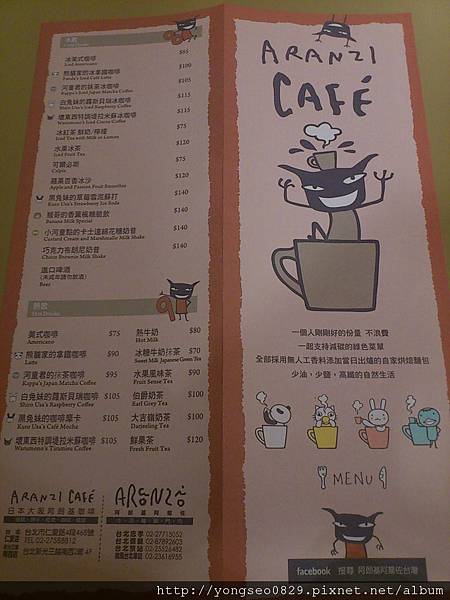 冰飲
冰美式咖啡 $85
Iced Americano
熊貓家的冰拿鐵咖啡 $100
Panda's Iced Café Latte
河童君的抹茶冰咖啡 $105
Kappa's Iced Japan Matcha Coffee
白兔妹的蘿斯貝瑞冰咖啡 $115
Shiro Usa's Iced Raspberry Coffee
壞東西特調堤拉米蘇冰咖啡 $115
Warumono's Iced Cocoa Coffee
冰紅茶 鮮奶/檸檬 $75
Iced Tea with Milk or Lemon
水果冰茶 $120
Iced Fruit Tea
可爾必斯 $75
Calpis
蘋果百香冰沙 $120
Apple and Passion Fruit Smoothies
黑兔妹的草莓雪泥蘇打 $140
Kuro Usa's Strawberry Ice Soda
猴哥的香蕉楓糖脆飲 $140
Banana Milk Special
小河童點的卡士達綿花糖奶昔 $140
Custard Cream and Marshmallow Milk Shake
巧克力布朗尼奶昔 $140
Choco Brownie Milk Shake
進口啤酒
(未成年請勿飲酒)
Beer
熱飲
Hot Drinks
美式咖啡 $75 熱牛奶 $80
Americano Hot Milk
熊貓家的拿鐵咖啡 $90 冰糖牛奶抹茶 $70
Latte Sweet Milk Japanese Green Tea
河童君的抹茶咖啡 $95 水果風味茶 $90
Kappa's Japan Matcha Coffee Fruit Sense Tea
白兔妹的蘿斯貝瑞咖啡 $105 伯爵奶茶 $100
Shiro Usa's Raspberry Coffee Earl Grey Tea
黑兔妹的咖啡摩卡 $105 大吉嶺奶茶 $100
Kuro Usa's Café Mocha Darjeeling Tea
壞東西特調堤拉米蘇咖啡 $105 鮮果茶 $120
Warumono's Tiramisu Coffee Fresh Fruit Tea
ARANZI CAFÉ
日本大阪阿朗基咖啡
仁愛店 台北市仁愛路4段465號
TEL 02-27558812
台北新光三越南西2館 4F
ARONZO
阿朗基阿龍佐
台北忠孝 02-27713052
台北信義 02-87892603
台北京站 02-25526482
02-23616955
ARANZI
CAFÉ
一個人剛剛好的份量 不浪費
一起支持減碳的綠色菜單
全部採用無人工香料添加當日出爐的自家烘焙麵包
少油，少鹽，高纖的自然生活
MENU
facebook 搜尋 阿朗基阿龍佐台灣
http://yongseo0829.pixnet.net/album